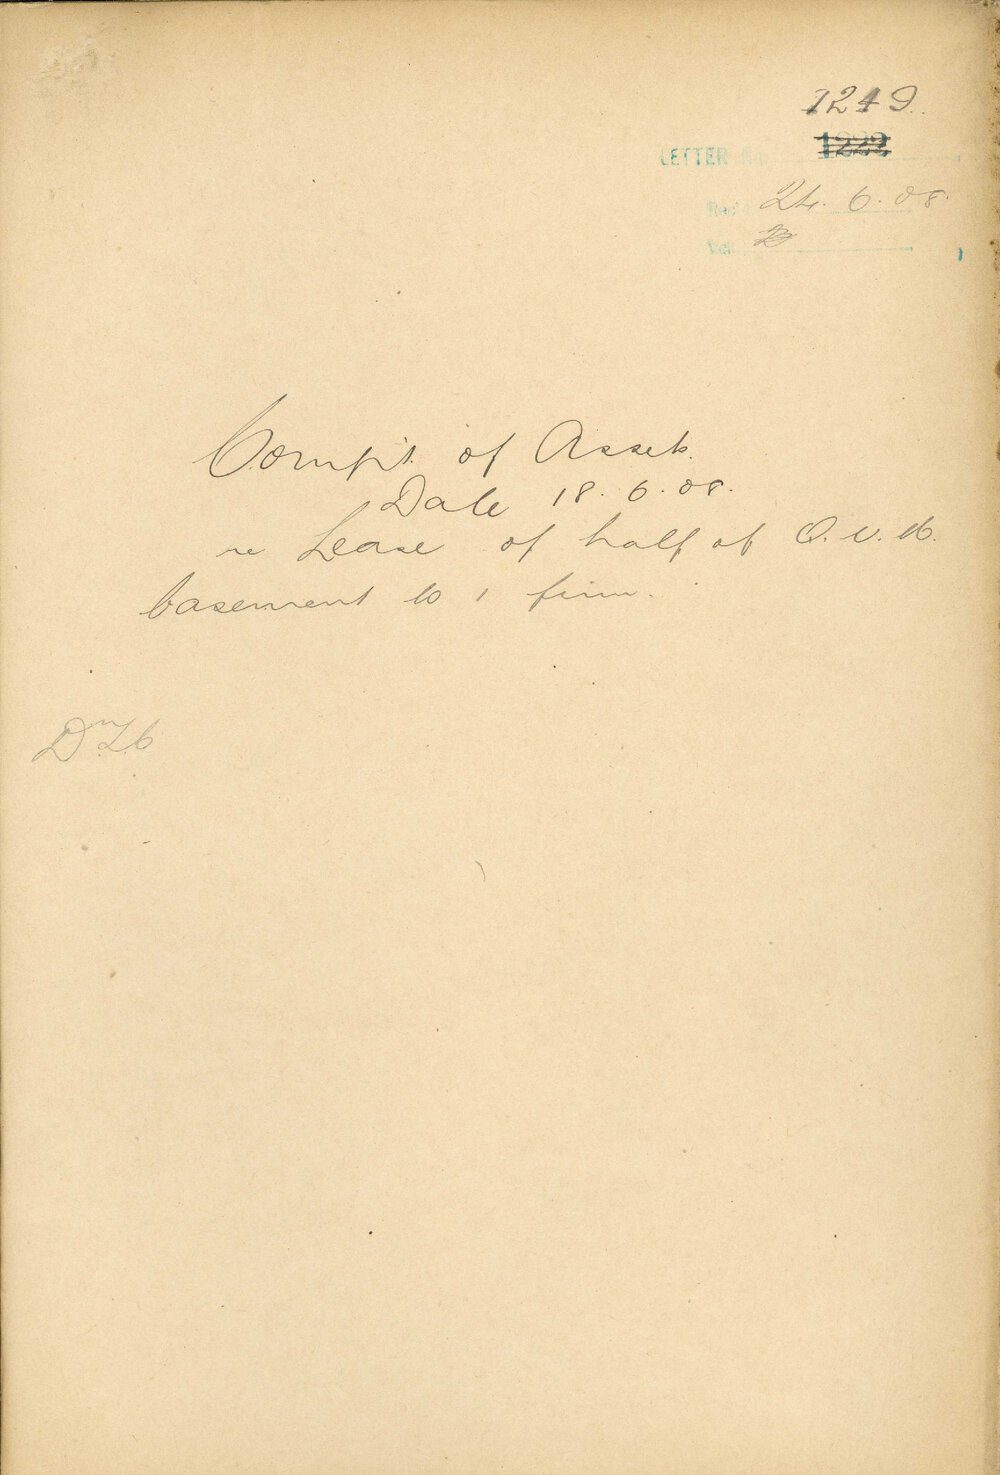 1249.
LETTER No. 1222
Rec'd 24. 6. 08.
Compt. of Assets.
Date 18. 6. 08.
re Lease of half of Q. V. M.
basement to 1 firm.